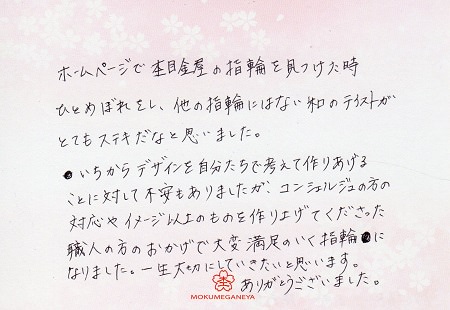 ホームページで杢目金屋の指輪を見つけた時
ひとめぼれをし、他の指輪にはない和のテイストが
とてもステキだなと思いました。
いちからデザインを自分たちで考えて作りあげる
ことに対して不安もありましたが、コンシェルジュの方の
対応やイメージ以上のものを作り上げてくださった
職人の方のおかげで大変満足のいく指輪に
なりました。一生大切にしていきたいと思います。
ありがとうございました。
杢
MOKUMEGANEYA